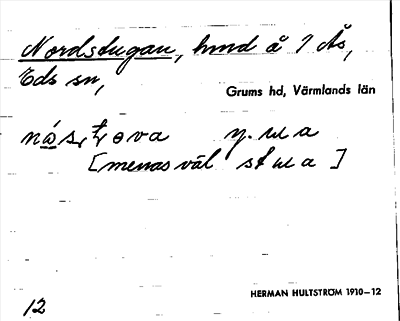 Nordstugan, hmd å 7 Ås,
Eds sn,
Grums hd, Värmlands län
y. ua
[menas väl stua]
HERMAN HULTSTRÖM 1910–12
12